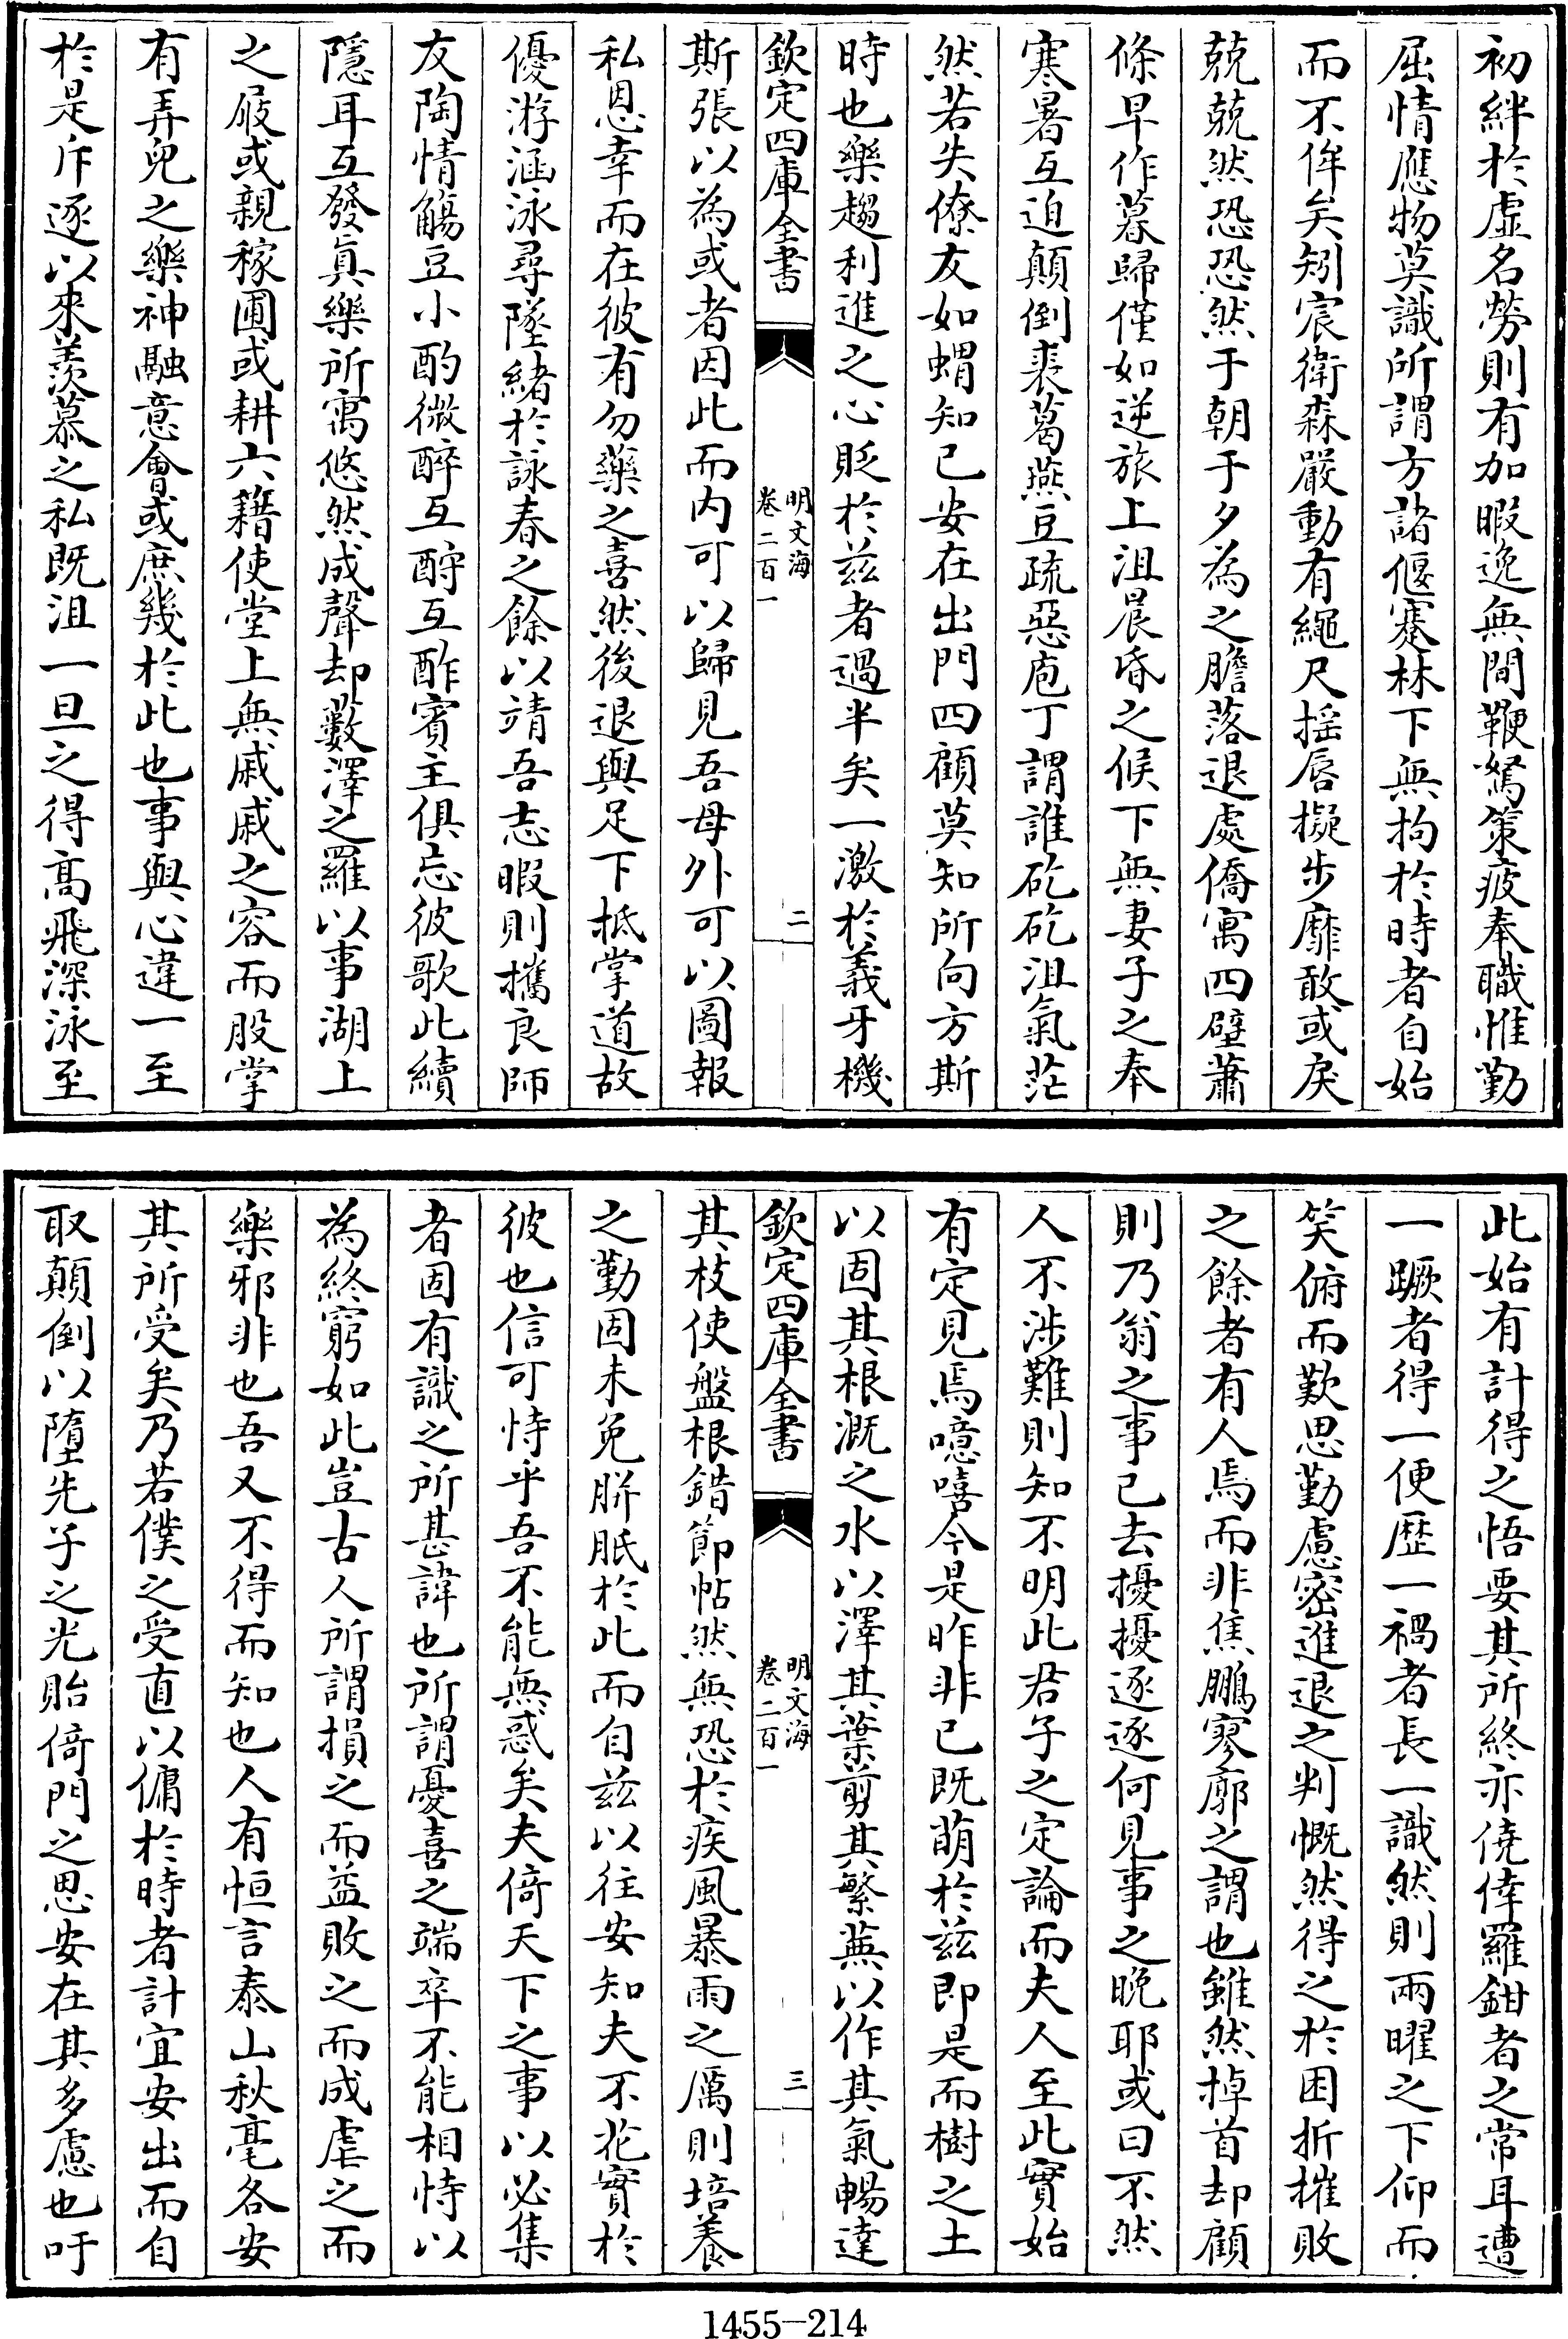 初絆於虛名勞則有加暇逸無間鞭駑策疲奉職惟勤
屈情應物莫識所謂方諸偃蹇林下無拘於時者自始
而不侔矣矧宸衛森嚴動有繩尺揺唇擬步靡敢或戾
兢兢然恐恐然于朝于夕為之膽落退處僑寓四壁蕭
條早作暮歸僅如逆旅上沮晨昏之候下無妻子之奉
寒暑互迫顛倒裘葛燕豆疏惡庖丁謂誰矻矻沮氣茫
然若失僚友如蝟知已安在出門四顧莫知所向方斯
時也樂趨利進之心貶於兹者過半矣一激於義牙機
欽定四庫全書
明文海
卷二百一
二
斯張以為或者因此而内可以歸見吾母外可以圖報
私恩幸而在彼有勿藥之喜然後退與足下抵掌道故
優游涵泳尋墜緒於詠春之餘以靖吾志暇則攜良師
友陶情觴豆小酌微醉互酧互酢賓主俱忘彼歌此續
隱耳互發真樂所寓悠然成聲却藪澤之羅以事湖上
之屐或親稼圃或耕六籍使堂上無戚戚之容而股掌
有弄兒之樂神融意會或庶幾於此也事與心違一至
於是斥逐以來羡慕之私既沮一旦之得髙飛深泳至
此始有計得之悟要其所終亦僥倖羅鉗者之常耳遭
一蹶者得一便歴一禍者長一識然則兩曜之下仰而
笑俯而歎思勤慮密進退之判慨然得之於困折摧敗
之餘者有人焉而非焦鵬寥廓之謂也雖然掉首却顧
則乃翁之事已去擾擾逐逐何見事之晩耶或曰不然
人不涉難則知不明此君子之定論而夫人至此實始
有定見焉噫嘻今是昨非已既萌於兹即是而樹之土
以固其根溉之水以澤其葉剪其繁蕪以作其氣暢達
欽定四庫全書
明文海
卷二百一
三
其枝使盤根錯節帖然無恐於疾風暴雨之厲則培養
之勤固未免胼胝於此而自兹以往安知夫不花實於
彼也信可恃乎吾不能無惑矣夫倚天下之事以必集
者固有識之所甚諱也所謂憂喜之端卒不能相恃以
為終窮如此豈古人所謂損之而益敗之而成虐之而
樂邪非也吾又不得而知也人有恒言泰山秋毫各安
其所受矣乃若僕之受直以傭於時者計宜安出而自
取顛倒以墮先子之光貽倚門之思安在其多慮也吁
1455-214